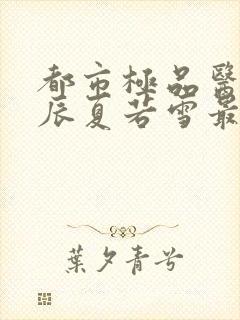 都市極品醫
辰夏若雪最
葉夕青兮